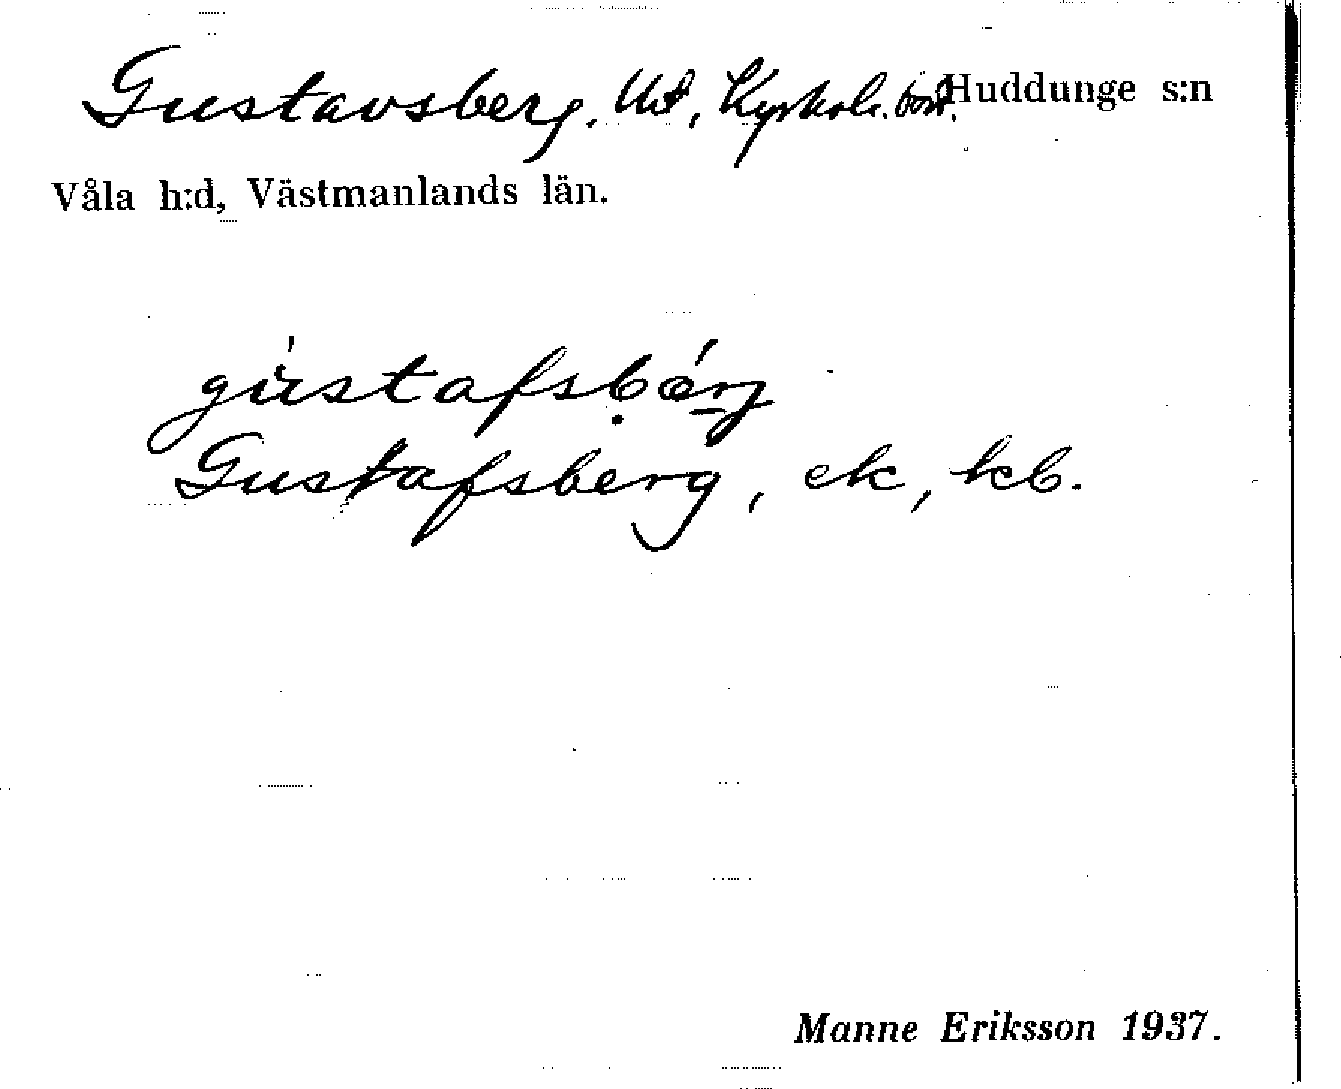 Gustavsberg. Ut, Kyrkolr. bost. Huddunge s:n
Våla h:d, Västmanlands län.
gùstafsbærj
Gustafsberg, ek, kb.
Manne Eriksson 1937.